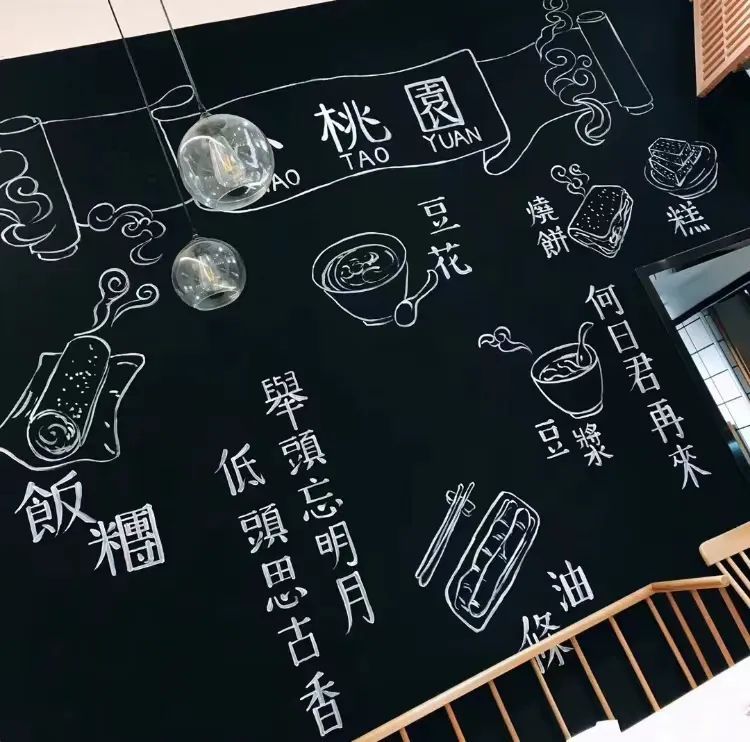 桃園
AO TAO YUAN
豆花
燒餅
糕
何日君再來
豆漿
飯糰
舉頭忘明月
低頭思古香
油條